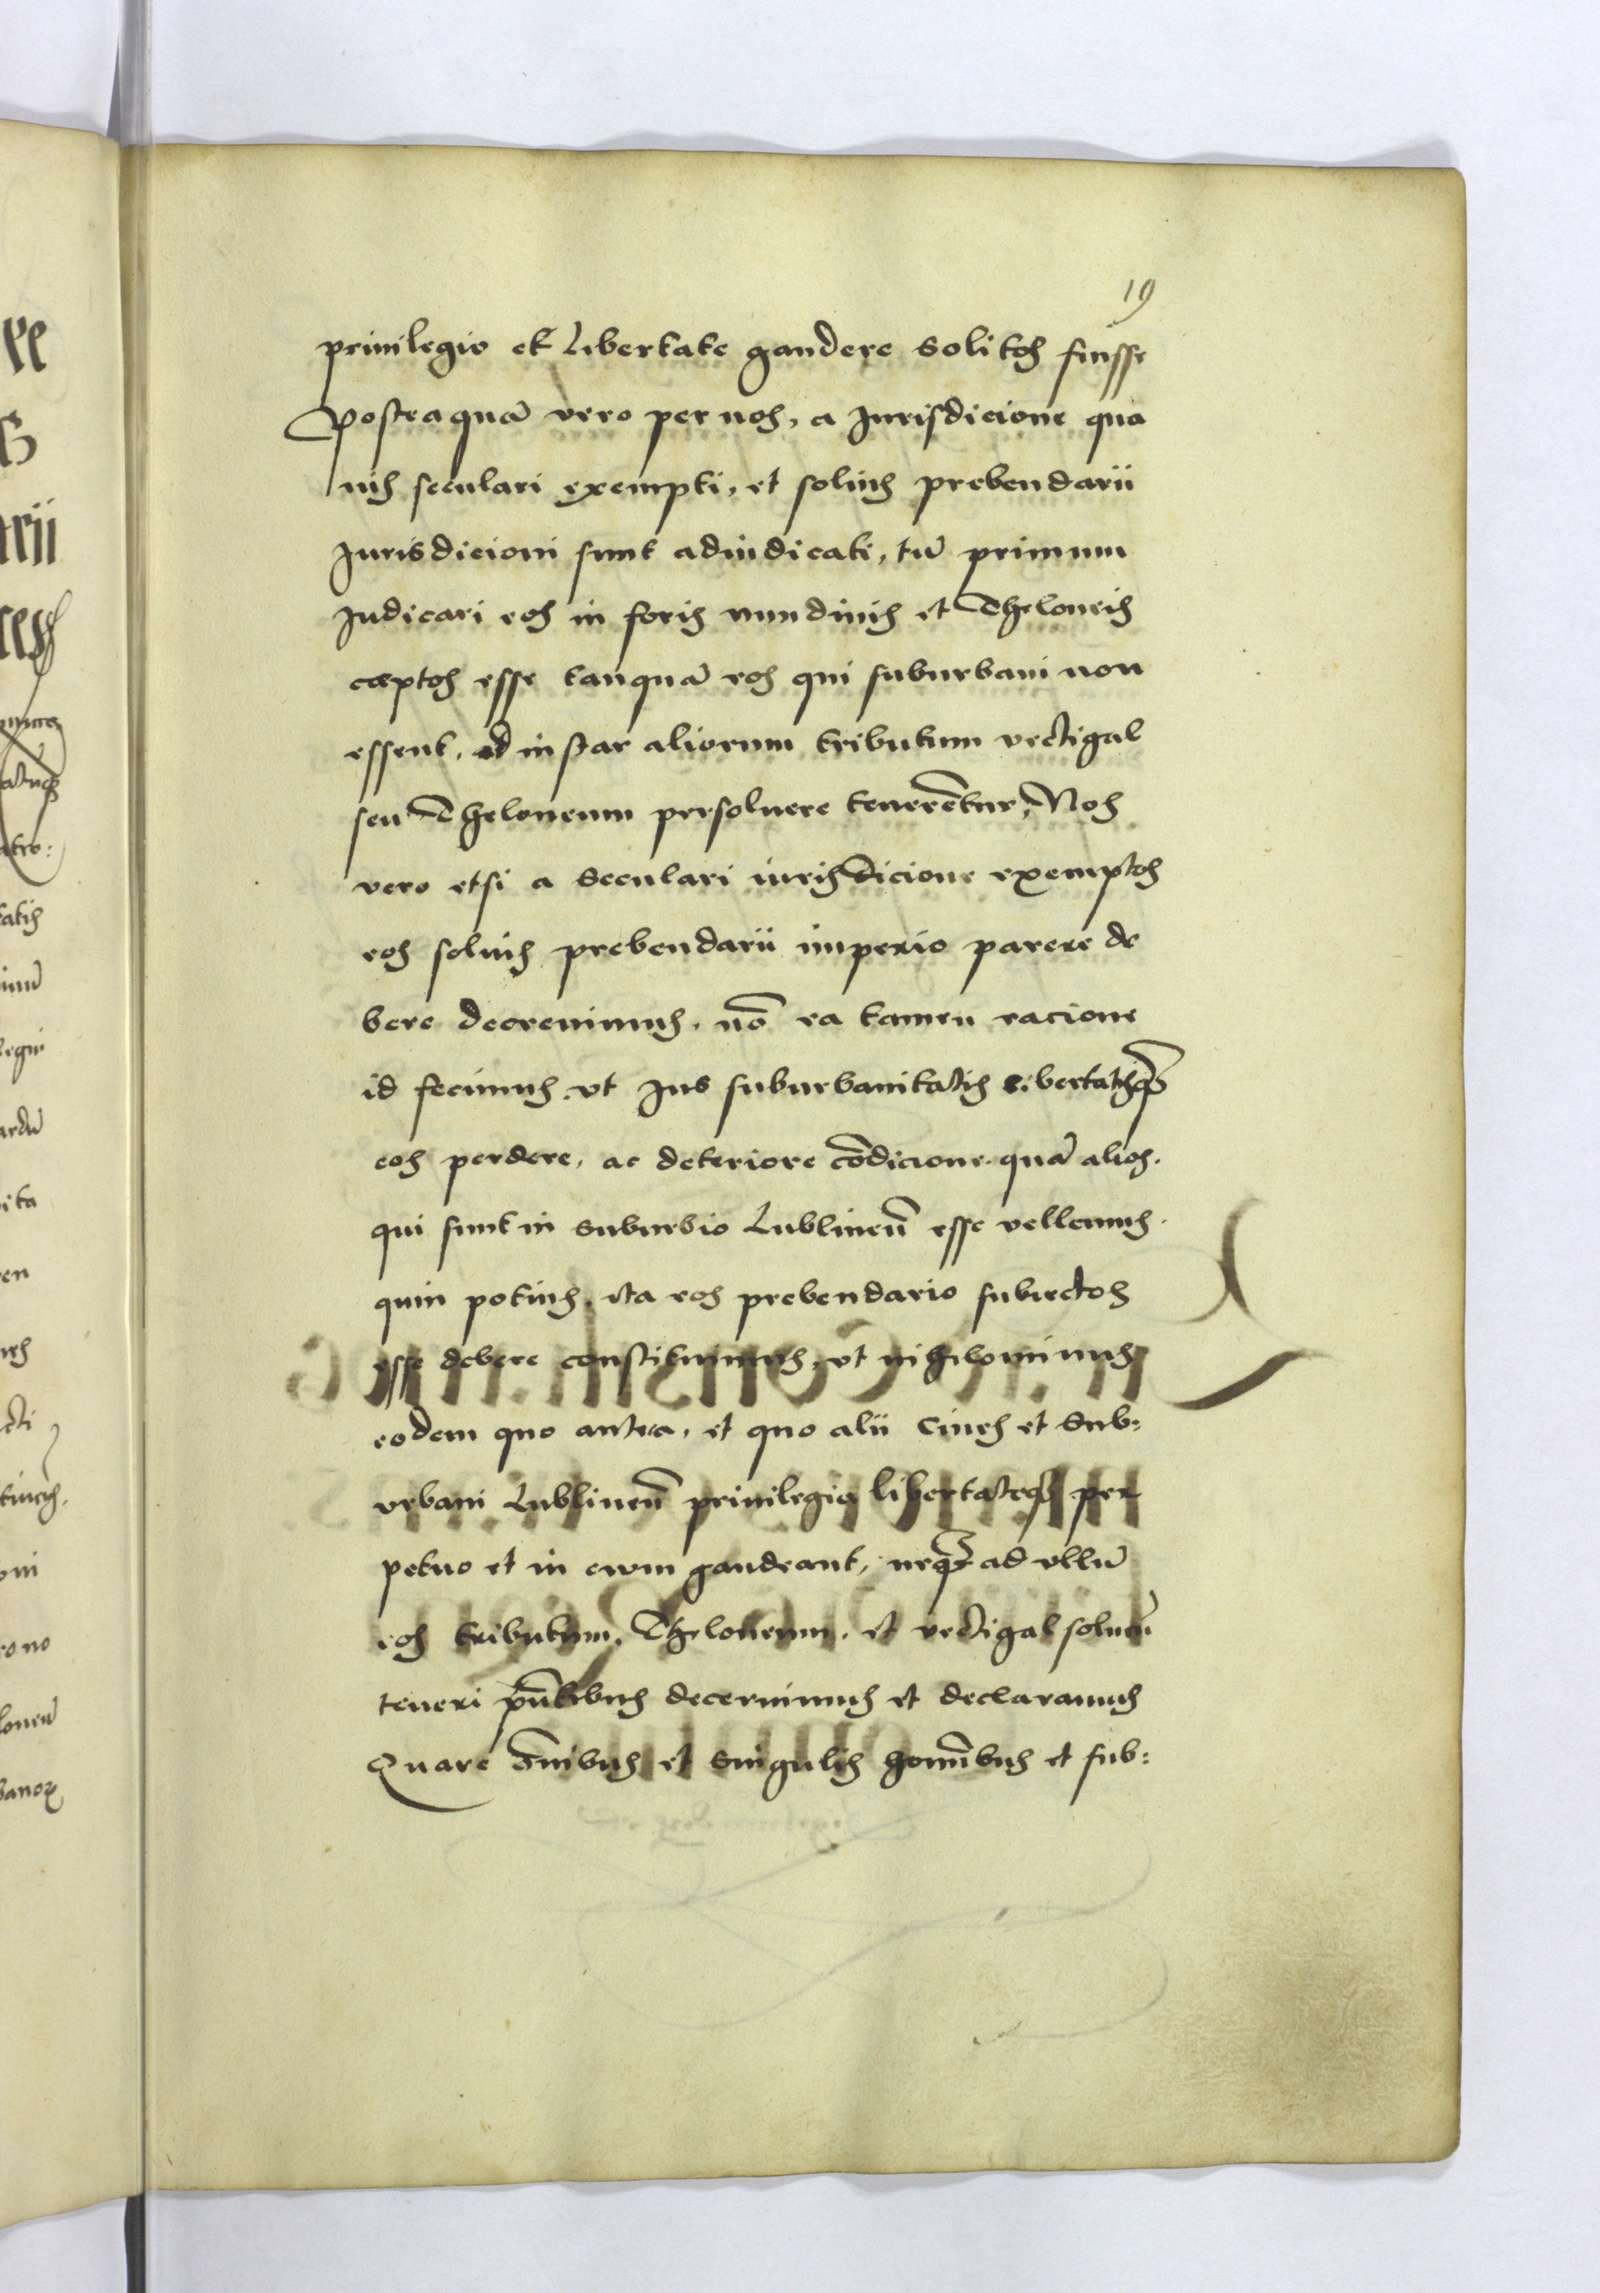 19
priuilegio et Libertate gaudere solitos fuisse
Posteaquā vero per nos, a Jurisdicione qua
uis seculari exempti, et solius prebendarii
Jurisdicioni sunt adiudicati, tū primum
Judicari eos in foris nundinis et Theloneis
cœptos esse tanquā eos qui suburbani non
essent, ad instar aliorum tributum vectigal
seu Theloneum persoluere tenerētur, Nos
vero etsi a seculari iurisdicione exemptos
eos solius prebendarii imperio parere de
bere decreuimus, nō ea tamen racione
id fecimus, vt Jus suburbanitatis libertatisqȝ
eos perdere, ac deteriore cōdicione quā alios.
qui sunt in suburbio Lublineñ esse vellemus.
quin potius, ita eos prebendario subiectos
esse debere constituimus, vt nihilominus
eodem quo antea, et quo alii Ciues et Sub:
vrbani Lublineñ priuilegio libertateqȝ per
petuo et in evum gaudeant, neqȝ ad vllū
eos tributum, Theloneum, et vectigal soluēn̄
teneri pn̄tibus decernimus et declaramus
Quare oīnibus et singulis homībus et sub:
ee
rii
atro:
tatis
ita
en
cti
oni
ro no
loneū
banoꝝ